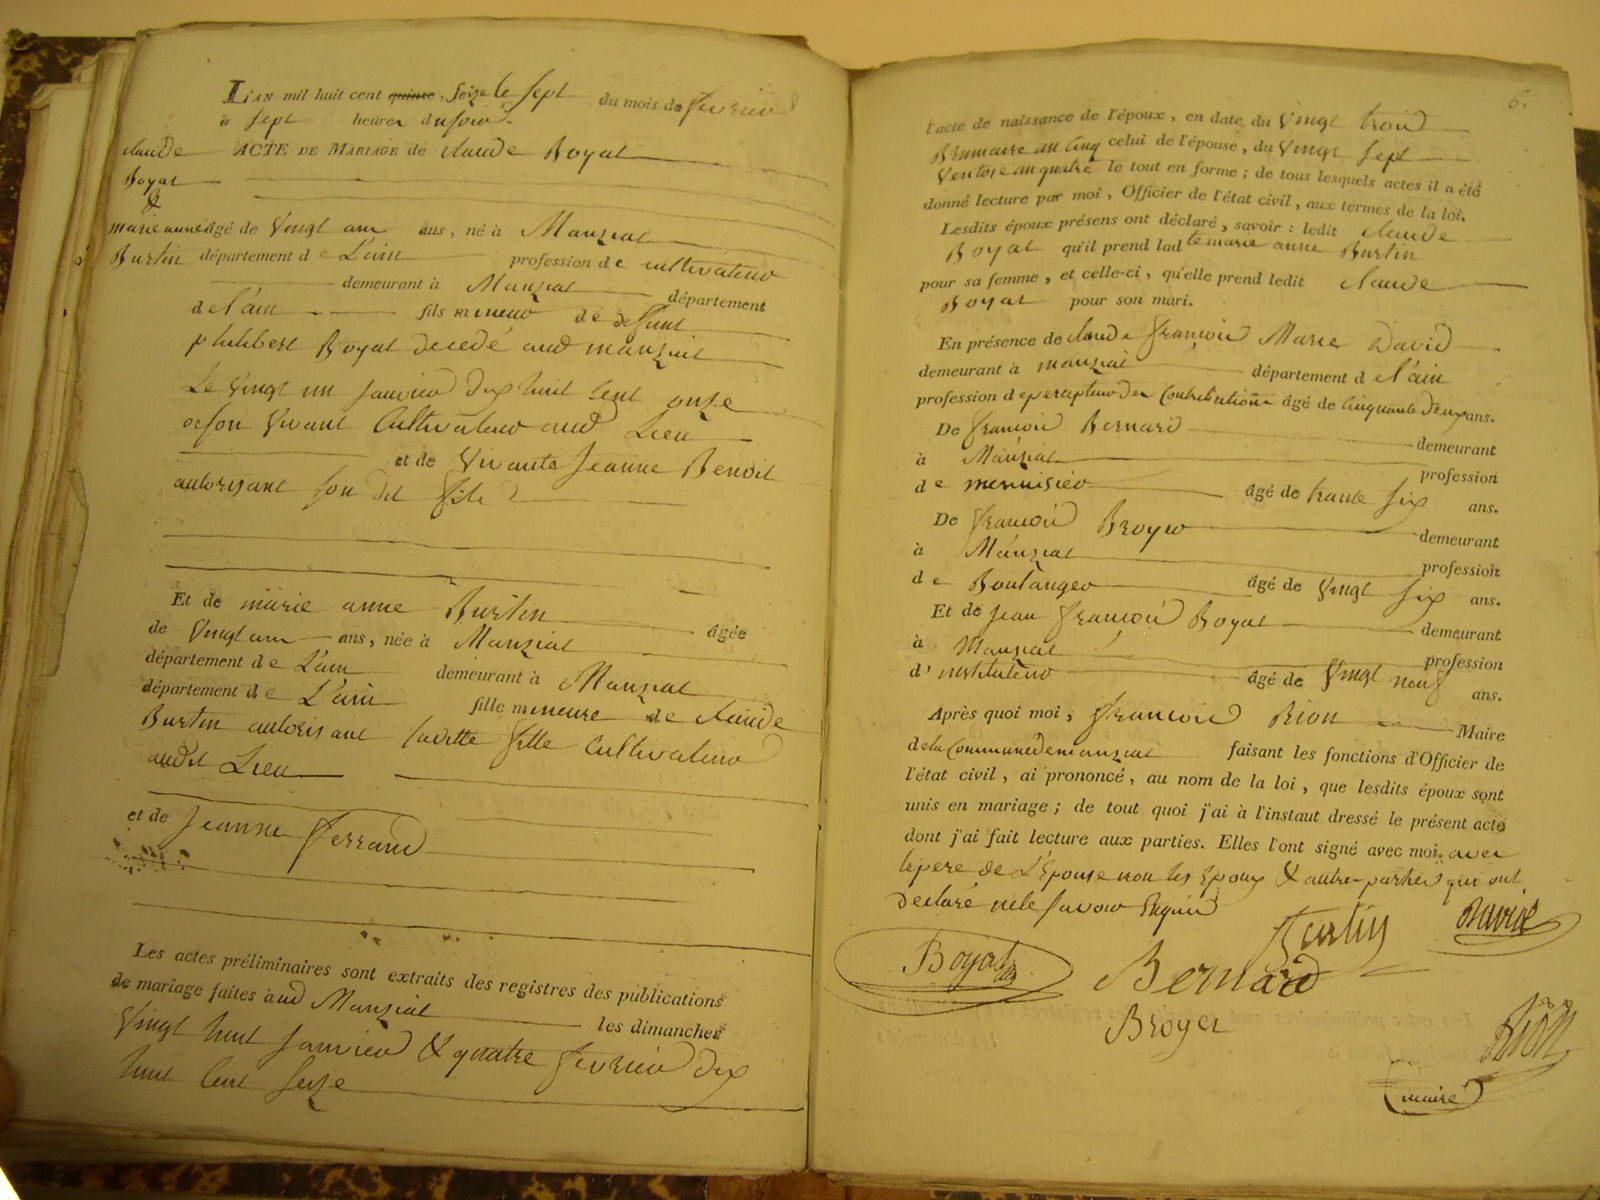 L'AN mil huit cent quinze, Seize le Sept du mois de fevrier
à Sept heures du soir.
claude ACTE DE MARIAGE de claude Boyat
Boyat
&
marie anne âgé de Vingt ans ans, né à Manziat
Burtin département de L'ain profession de cultivateur
demeurant à Manziat département
de l'ain fils mineur de deffunt
philibert Boyat decedé aud manziat
Le Vingt un janvier dix huit cent onze
de son Vivant Cultivateur aud Lieu
et de Vivante Jeanne Benoit
autorisant son dit fils
Et de marie anne Burtin âgée
de Vingt ans ans, née à Manziat
département de L'ain demeurant à Manziat
département de L'ain fille mineure de claude
Burtin autorisant laditte fille Cultivateur
audit Lieu
et de Jeanne Ferrand
Les actes préliminaires sont extraits des registres des publications
de mariage faites à aud Manziat les dimanches
Vingt huit janvier & quatre fevrier dix
huit cent seize
6.
l'acte de naissance de l'époux, en date du Vingt trois
Brumaire an Cinq celui de l'épouse, du Vingt Sept
Ventose an quatre le tout en forme; de tous lesquels actes il a été
donné lecture par moi, Officier de l'état civil, aux termes de la loi.
Lesdits époux présens ont déclaré, savoir: ledit claude
Boyat qu'il prend ladte marie anne Burtin
pour sa femme, et celle-ci, qu'elle prend ledit claude
Boyat pour son mari.
En présence de claude François Marie David
demeurant à manziat département de l'ain
profession de percepteur des Contributions âgé de Cinquante deux ans.
De François Bernard demeurant
à Manziat profession
de menuisier âgé de trante six ans.
De François Broyer demeurant
à Manziat profession
de Boulanger âgé de Vingt six ans.
Et de Jean François Boyat demeurant
à Manziat profession
d'instituteur âgé de Vingt neuf ans.
Après quoi moi, François Rion Maire
de la Commune de manziat faisant les fonctions d'Officier de
l'état civil, ai prononcé, au nom de la loi, que lesdits époux sont
unis en mariage; de tout quoi j'ai à l'instant dressé le présent acte
dont j'ai fait lecture aux parties. Elles l'ont signé avec moi. avec
le pere de L'Epouse non les Epoux & autre parties qui ont
declaré ne le savoir Enquis
Burtin David
Boyat Bernard
Broyer Rion
maire